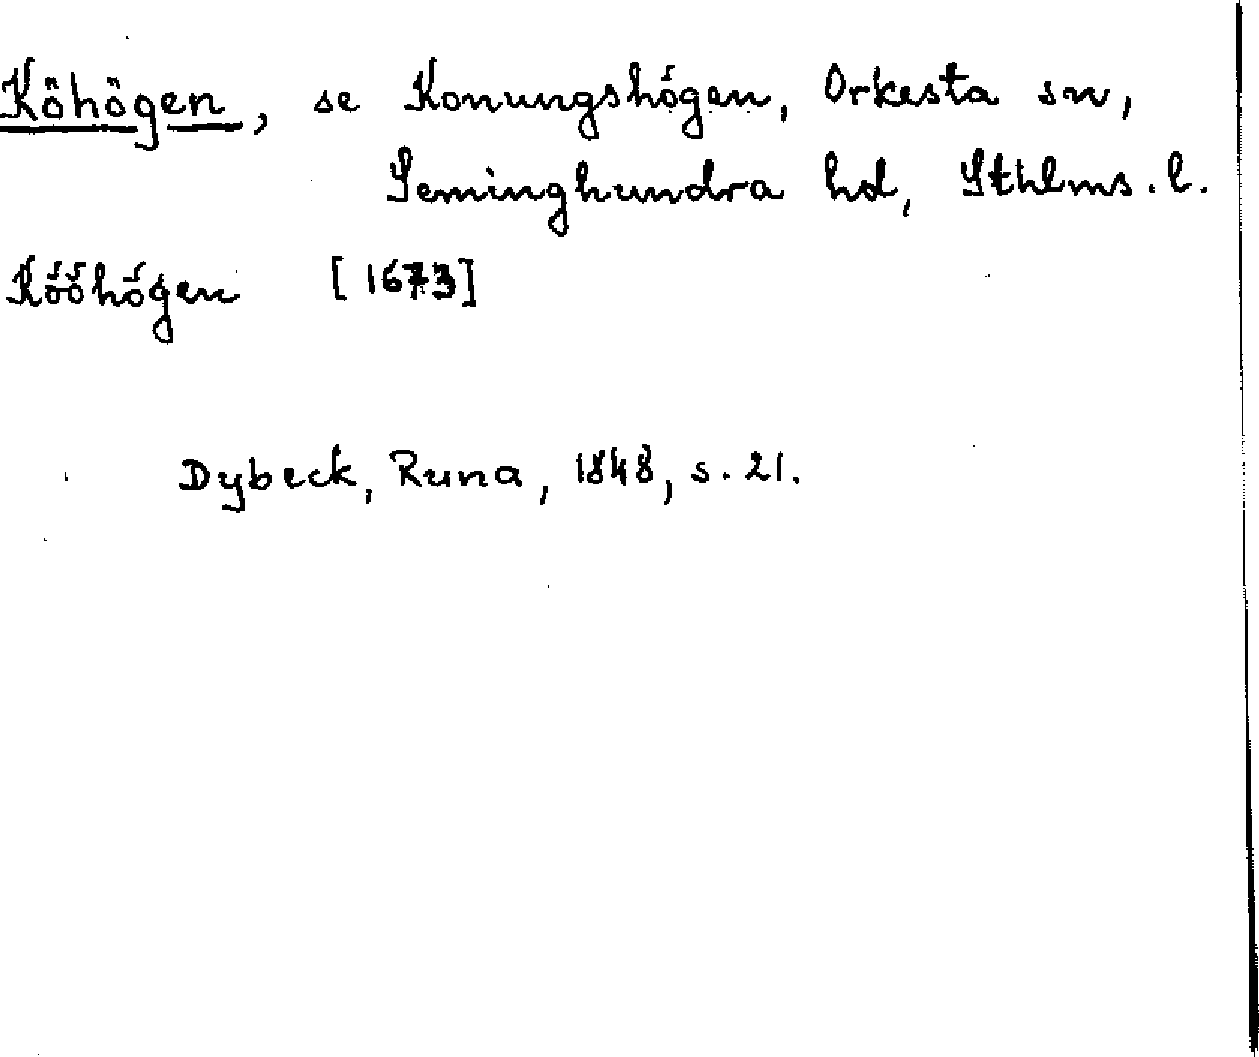 Köhögen, se Konungshögen, Orkesta sn,
Seminghundra hd, Sthlms. l.
Kööhögen [1673]
Dybeck, Runa, 1848, s. 21.